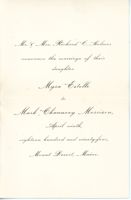 Mr. & Mrs. Richard C.
announce the marriage of their
daughter
Myra Estelle
to
Mark Chauncey Morrison,
April ninth,
eighteen hundred and ninety-four,
Mount Desert, Maine.